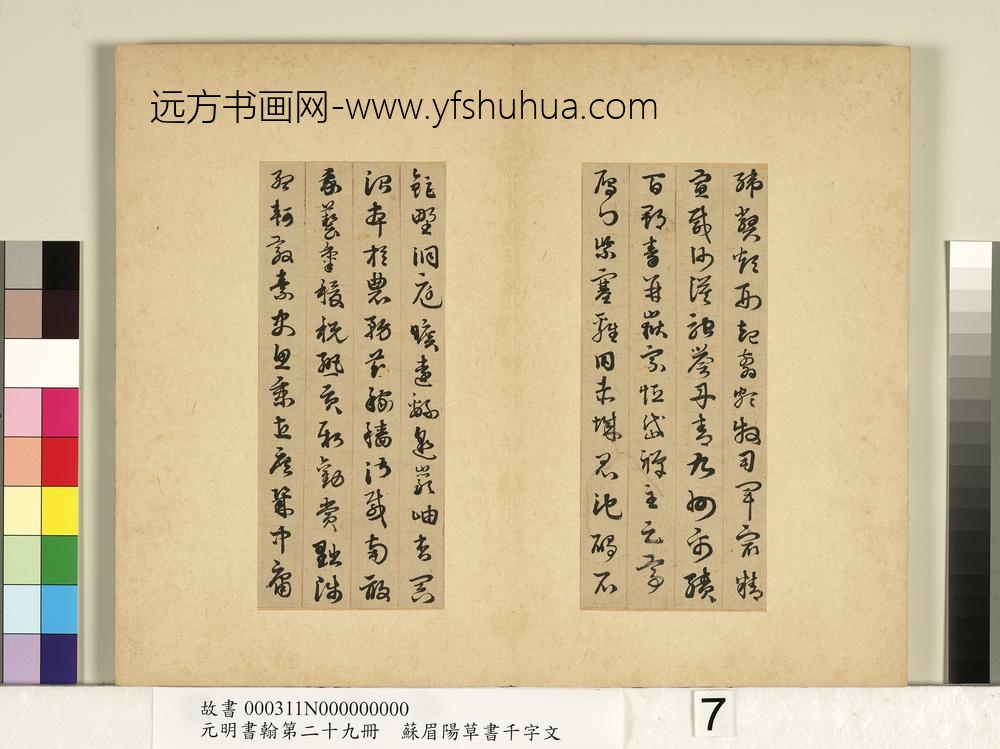 远方书画网-www.yfshuhua.com
韓弊煩刑起翦頗牧用軍最精
宣威沙漠馳譽丹青九州禹蹟
百郡秦并嶽宗恒岱禪主云亭
雁門紫塞雞田赤城昆池碣石
鉅野洞庭曠遠緜邈巖岫杳冥
治本於農務茲稼穡俶載南畝
我藝黍稷稅熟貢新勸賞黜陟
孟軻敦素史魚秉直庶幾中庸
故書 000311N000000000
元明書翰第二十九冊 蘇眉陽草書千字文
7